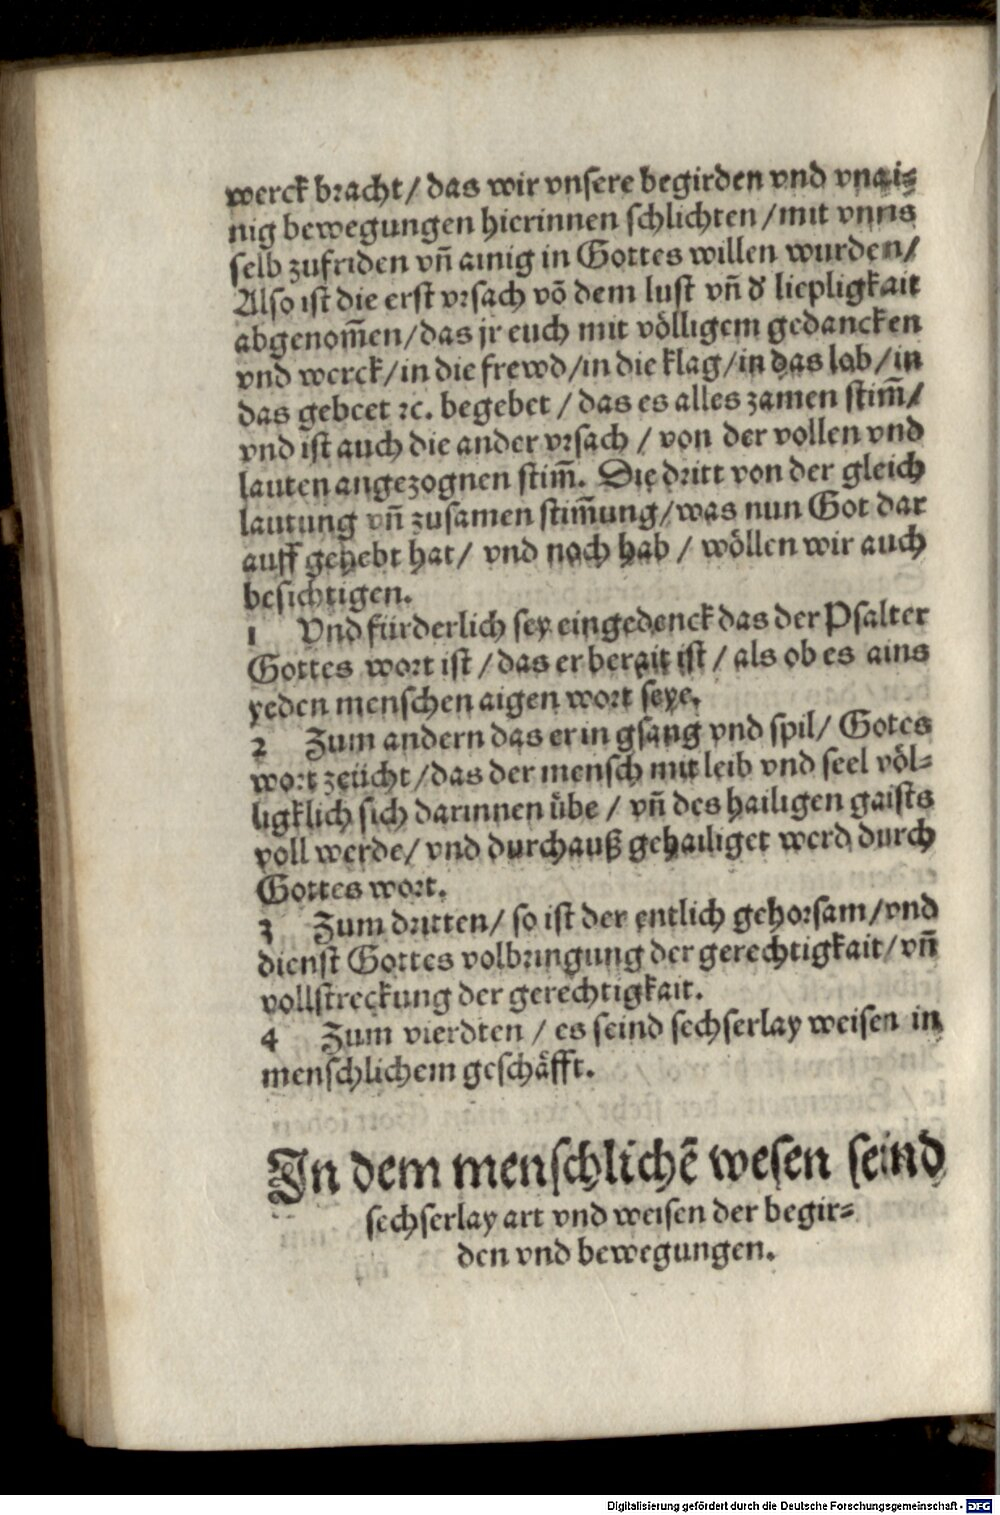 werck bracht / das wir vnsere begirden vnd vnai⸗
nig bewegungen hierinnen schlichten / mit vnns
selb zufriden vñ ainig in Gottes willen wurden /
Also ist die erst vrsach võ dem lust vñ d̕ liepligkait
abgenom̃en / das jr euch mit völligem gedancken
vnd werck / in die frewd / in die klag / in das lob / in
das gebeet ꝛc. begebet / das es alles zamen stim̃ /
vnd ist auch die ander vrsach / von der vollen vnd
lauten angezognen stim̃. Die dritt von der gleich
lautung vñ zusamen stim̃ung / was nun Got dar
auff gehebt hat / vnd noch hab / wöllen wir auch
besichtigen.
1 Vnd fürderlich sey eingedenck das der Psalter
Gottes wort ist / das er berait ist / als ob es ains
yeden menschen aigen wort seye.
2 Zum andern das er in gsang vnd spil / Gotes
wort zeücht / das der mensch mit leib vnd seel völ⸗
ligklich sich darinnen übe / vñ des hailigen gaists
voll werde / vnd durchauß gehailiget werd durch
Gottes wort.
3 Zum dritten / so ist der entlich gehorsam / vnd
dienst Gottes volbringung der gerechtigkait / vñ
vollstreckung der gerechtigkait.
4 Zum vierdten / es seind sechserlay weisen in
menschlichem geschäfft.
In dem menschlichẽ wesen seind
sechserlay art vnd weisen der begir⸗
den vnd bewegungen.
Digitalisierung gefördert durch die Deutsche Forschungsgemeinschaft - DFG